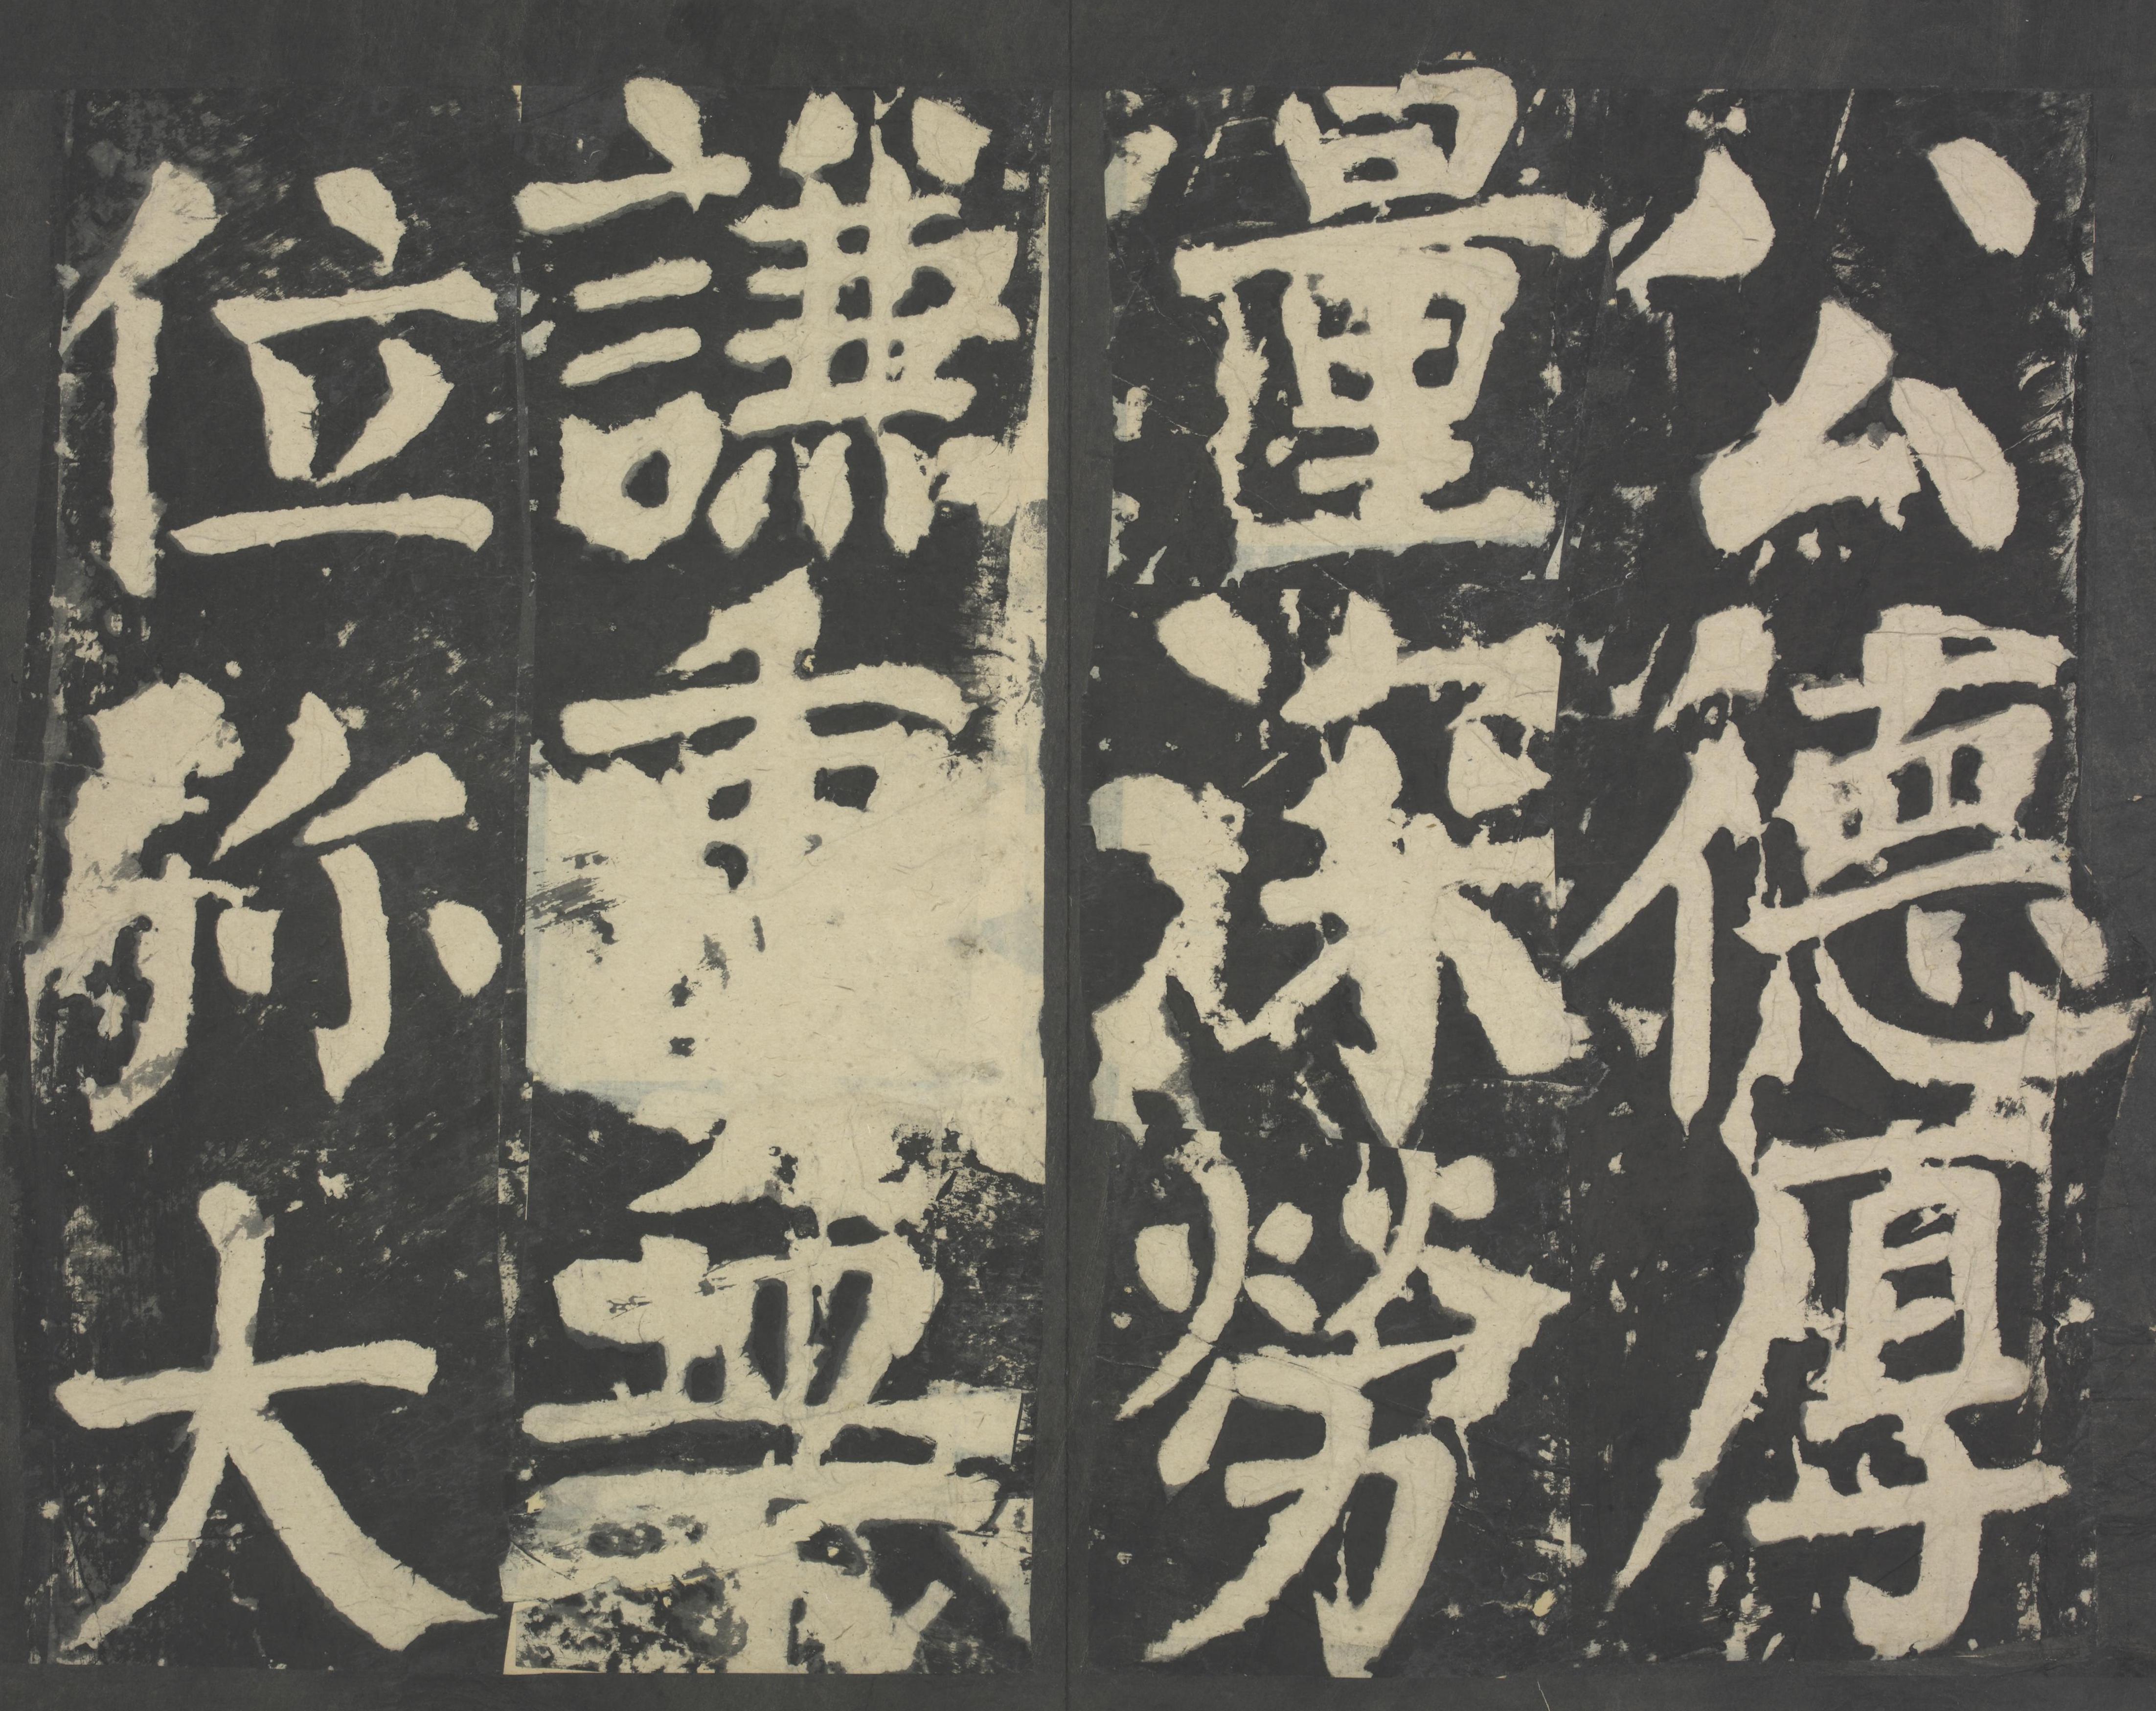 公德厚
量深勞
謙
位弥大